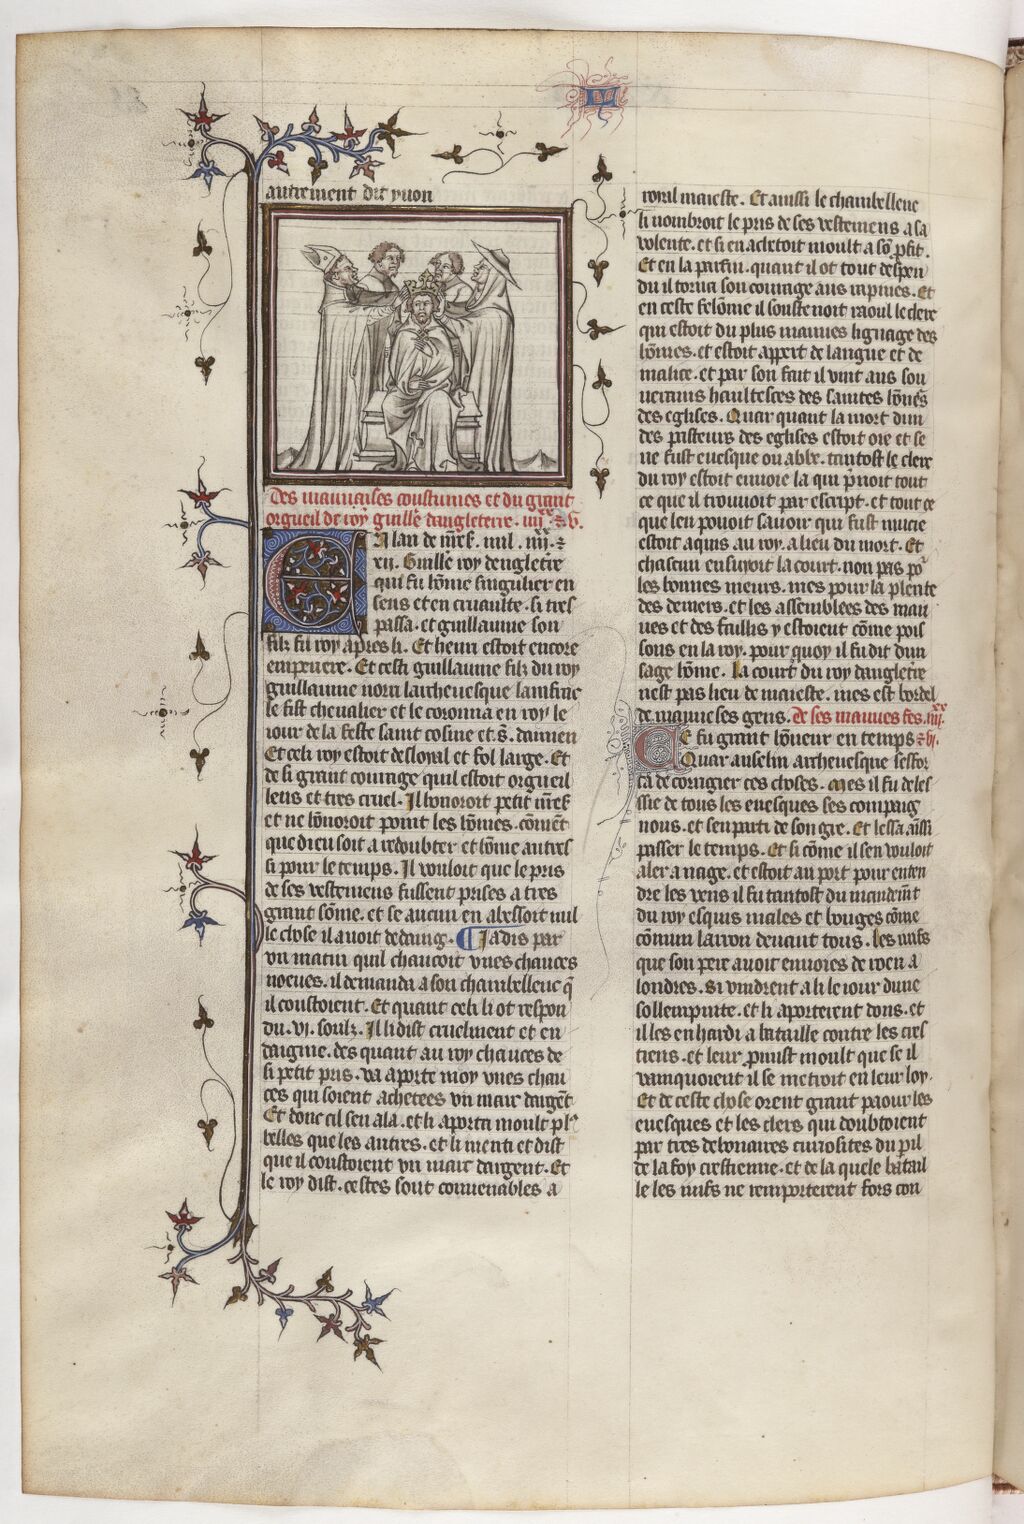 autrement dit yuon
Des mauuaises coustumes et du grant
orgueil de roy guillẽ dangleterre. iiii xx z v.
En lan de nrẽ s. mil. iiii xx z
xii. Guillẽ roy dengletre
qui fu hõme singulier en
sens et en cruaulte. si tres
passa. et guillaume son
filz fu roy apres li. Et henri estoit encore
empereur. Et cesti guillaume filz du roy
guillaume norri larcheuesque lanfranc
le fist cheualier et le coronna en roy le
iour de la feste saint cosme et .s. damien
Et celi roy estoit desloyal et fol large. Et
de si grant courage quil estoit orgueil
leus et tres cruel. Il honoroit petit nrẽ s
et ne hõnoroit point les hõmes. cõmẽt
que dieu soit a redoubter et hõme autres
si pour le temps. Il vouloit que le pris
de ses vestemens fussent prises a tres
grant sõme. et se aucun en abessoit nul
le chose il auoit desdaing. Jadis par
vn matin quil chaucoit vnes chauces
noeues. il demanda a son chambellenc q̃
il coustoient. Et quant celi li ot respon
du .vi. soulz. Il li dist cruelment et en
daigne. des quant au roy chauces de
si petit pris. va aporte moy vnes chau
ces qui soient achetees vn marc dargẽt
Et donc cil sen ala. et li aporta moult pl9
belles que les autres. et li menti et dist
que il coustoient vn marc dargent. Et
le roy dist. cestes sont conuenables a
royal maieste. Et ainssi le chambellenc
li nombroit le pris de ses vestemens a sa
volente. et si en achetoit moult a sõ profit.
Et en la parfin. quant il ot tout despen
du il torna son courage aus rapines. Et
en ceste felõnie il soustenoit raoul le clerc
qui estoit du plus mauues lignage des
hõmes. et estoit appert de langue et de
malice. et par son fait il vint aus sou
uerains haultesces des saintes hõneꝰs
des eglises. Quar quant la mort dun
des pasteurs des eglises estoit oie et se
ne fust euesque ou abbe. tantost le clerc
du roy estoit enuoie la qui p̃noit tout
ce que il trouuoit par escript. et tout ce
que len pouoit sauoir qui fust mucie
estoit aquis au roy. a lieu du mort. Et
chascun ensuyoit la court. non pas poꝰ
les bonnes meurs. mes pour la plente
des deniers. et les assemblees des mau
ues et des faillis y estoient cõme pois
sons en la roy. pour quoy il fu dit dun
sage hõme. La court du roy dangletre
nest pas lieu de maieste. mes est bordel
de mauueses gens. De ses mauues fes. iiii xx z vi.
Ce fu grant hõneur en temps
Quar anselin archeuesque sesfor
sa de corrigier ces choses. mes il fu deles
sie de tous les euesques ses compaig
nons. et sen parti de son gre. Et lessa aĩssi
passer le temps. Et si cõme il sen vouloit
aler a nage. et estoit au port pour enten
dre les vens il fu tantost du mandemẽt
du roy esquis males et bouges cõme
cõmun larron deuant tous. les iuifs
que son pere auoit enuoies de roen a
londres. si vindrent a li le iour dune
sollempnite. et li aporterent dons. et
il les enhardi a bataille contre les cres
tiens. et leur p̃mist moult que se il
vainquoient il se metroit en leur loy.
Et de ceste chose orent grant paour les
euesques et les clers qui doubtoient
par tres debonaires curiosites du pil
de la foy crestienne. et de la quele batail
le les iuifs ne remporterent fors con